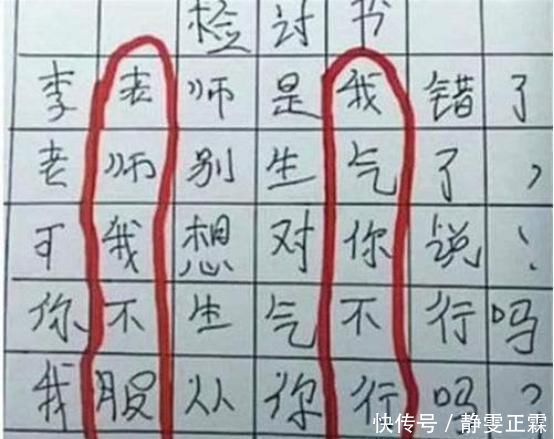 检讨书
李老师是我错了
老师别生气了，
可我想对你说！
你不生气不行吗
我服从你行吗？
快传号/静雯正霖